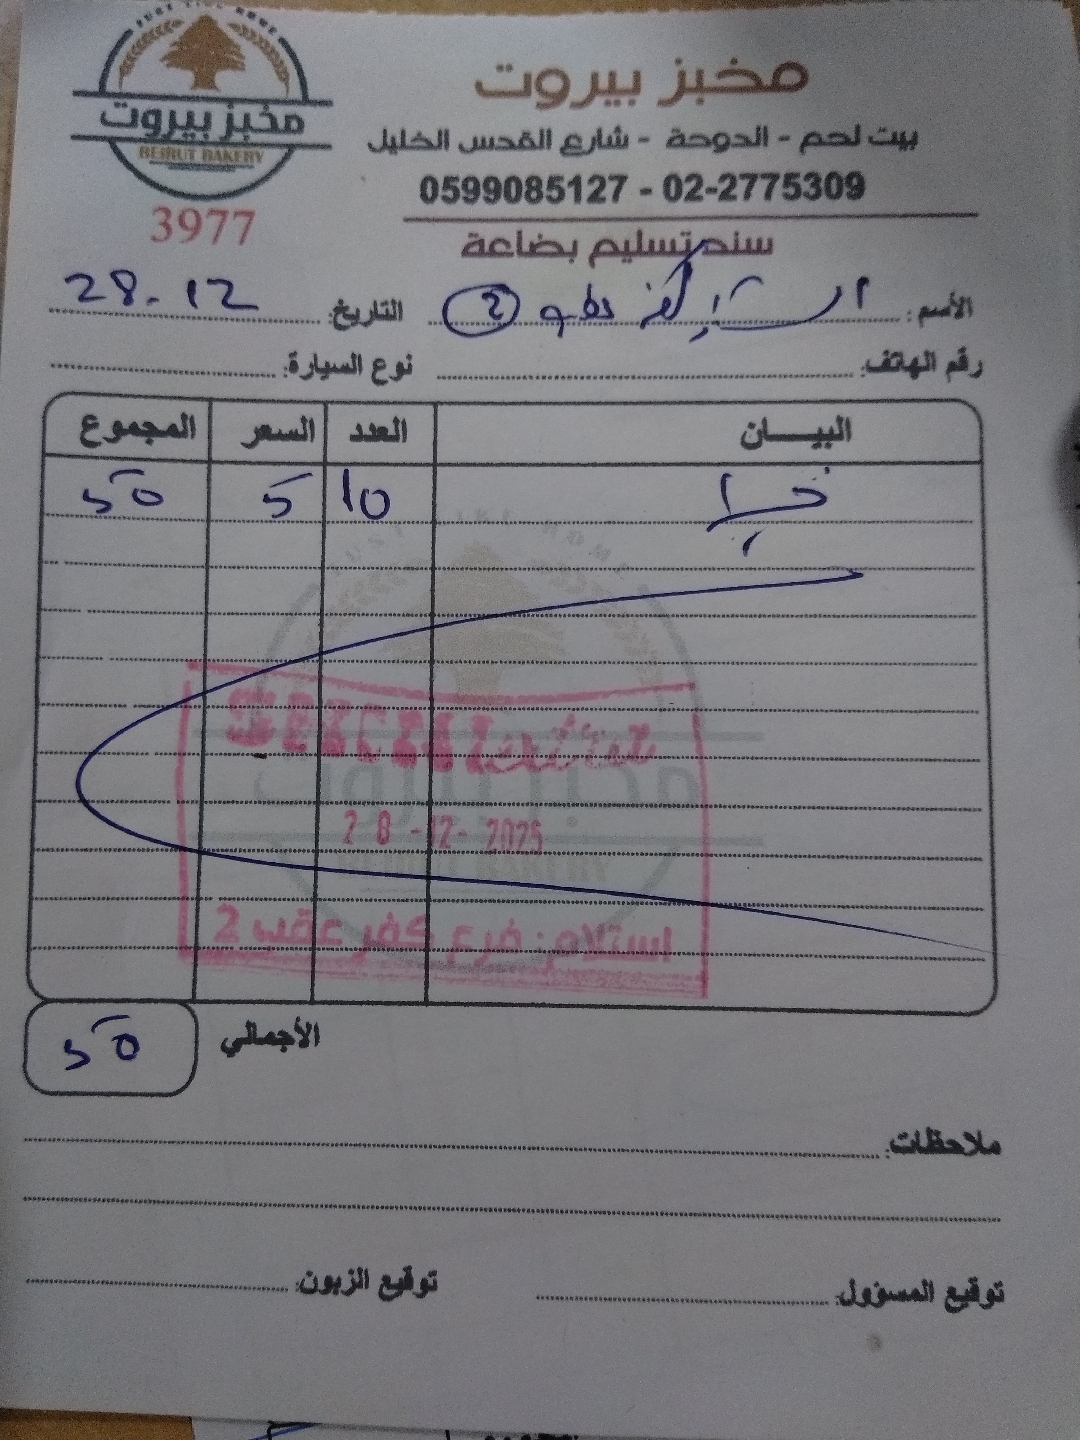 JUST LIKE HOME
مخبز بيروت
BEIRUT BAKERY
3977
مخبز بيروت
بيت لحم - الدوحة - شارع القدس الخليل
0599085127 - 02-2775309
سند تسليم بضاعة
الأسم: 2
التاريخ: 28-12
رقم الهاتف:
نوع السيارة:
البيـــان العدد السعر المجموع
10 5 50
28-12-2025
استلام: فرع كفر عقب 2
الأجمالي 50
ملاحظات:
توقيع المسؤول:
توقيع الزبون: